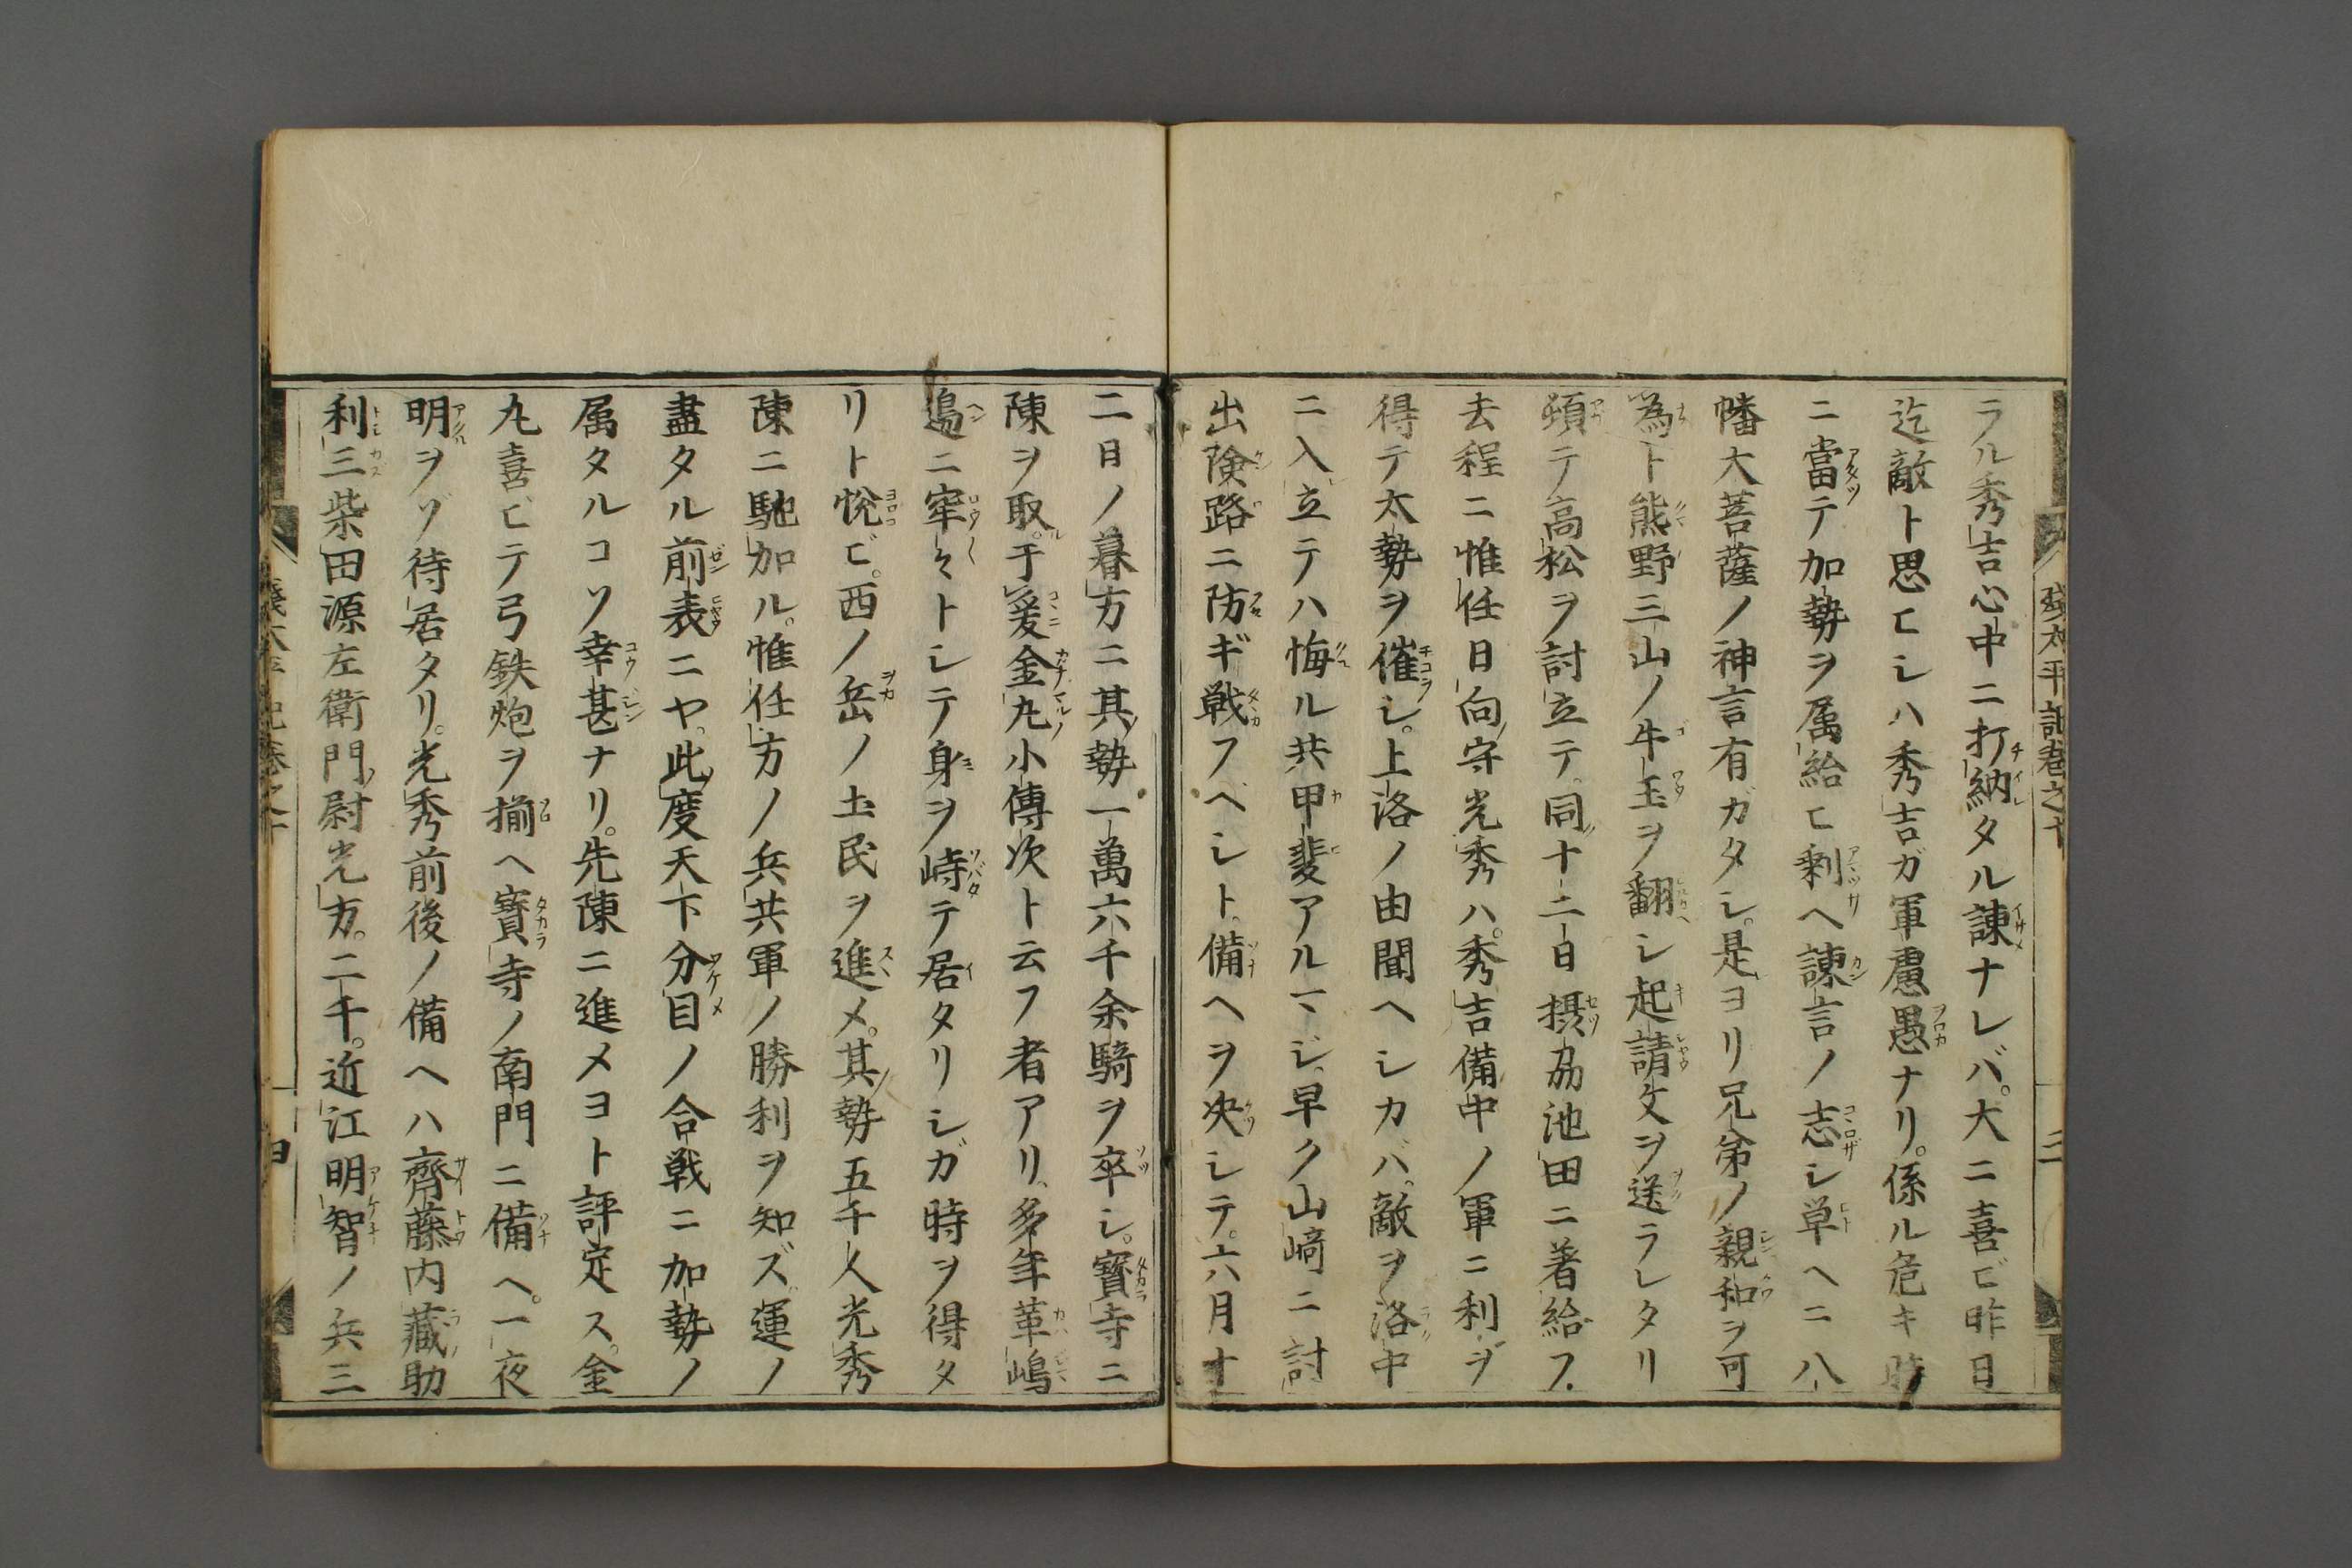 ラル秀吉心中ニ打納タル諌ナレバ。大ニ喜ビ昨日
迄敵ト思ヒシハ秀吉ガ軍慮愚ナリ。係ル危キ時
ニ當テ加勢ヲ属給ヒ剰ヘ諌言ノ志シ単ヘニ八
幡大菩薩ノ神言有ガタシ。是ヨリ兄弟ノ親和ヲ可
為ト熊野三山ノ牛玉ヲ翻シ起請文ヲ送ラレタリ
頓テ高松ヲ討立テ。同十二日摂刕池田ニ著給フ。
去程ニ惟任日向守光秀ハ。秀吉備中ノ軍ニ利ヲ
得テ太勢ヲ催シ。上洛ノ由聞ヘシカバ。敵ヲ洛中
ニ入立テハ悔ル共甲斐アルマジ。早ク山崎ニ討
出険路ニ防ギ戦フベシト。備ヘヲ决シテ。六月十
二日ノ暮方ニ其勢一萬六千余騎ヲ卒シ。寳寺ニ
陳ヲ取。于爰金丸小傳次ト云フ者アリ。多年革嶋
邉ニ牢々トシテ身ヲ峙テ居タリシガ時ヲ得タ
リト悦ビ。西ノ岳ノ土民ヲ進メ。其勢五千人光秀
陳ニ馳加ル。惟任方ノ兵共軍ノ勝利ヲ知ズ。運ノ
盡タル前表ニヤ。此度天下分目ノ合戦ニ加勢ノ
属タルコソ幸甚ナリ。先陳ニ進メヨト評定ス。金
丸喜ビテ弓鉄炮ヲ揃ヘ寳寺ノ南門ニ備ヘ。一夜
明ヲゾ待居タリ。光秀前後ノ備ヘハ齊藤内藏助
利三柴田源左衛門尉光方。二千。近江明智ノ兵三
残太平記巻之十
三
四